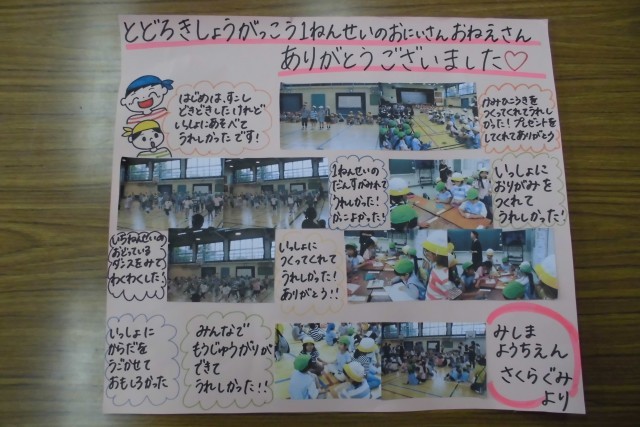 とどろきしょうがっこう1ねんせいのおにいさんおねえさん
ありがとうございました♡
はじめは、すこし
どきどきしたけれど
いっしょにあそべて
うれしかったです!
かみひこうきを
つくってくれてうれし
かった!プレゼントを
してくれてありがとう
1ねんせいの
だんすがみれて
うれしかった!
かっこよかった!
いっしょに
おりがみを
つくれて
うれしかった!
いちねんせいの
おどっている
ダンスをみて
わくわくした!
いっしょに
つくってくれて
うれしかった!
ありがとう!!
いっしょに
からだを
うごかせて
おもしろかった
みんなで
もうじゅうがりが
できて
うれしかった!!
みしま
ようちえん
さくらぐみ
より